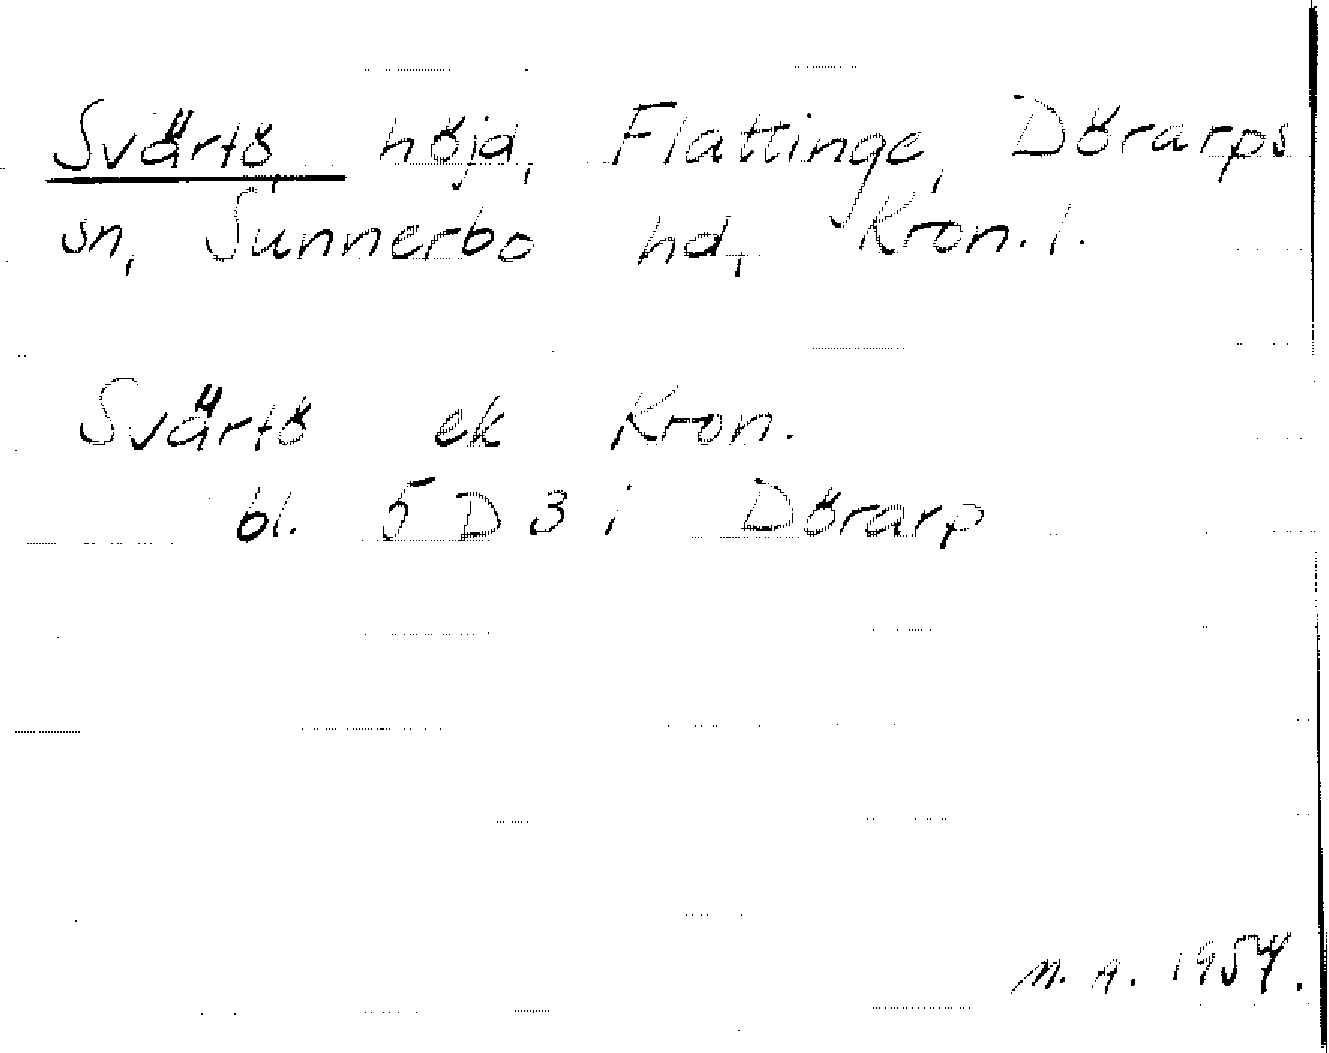 Svärtö, höjd, Flattinge, Dörarps
sn, Sunnerbo hd, Kron. l.
Svärtö ek Kron.
bl. 5 D 3 i Dörarp
M. A. 1954.